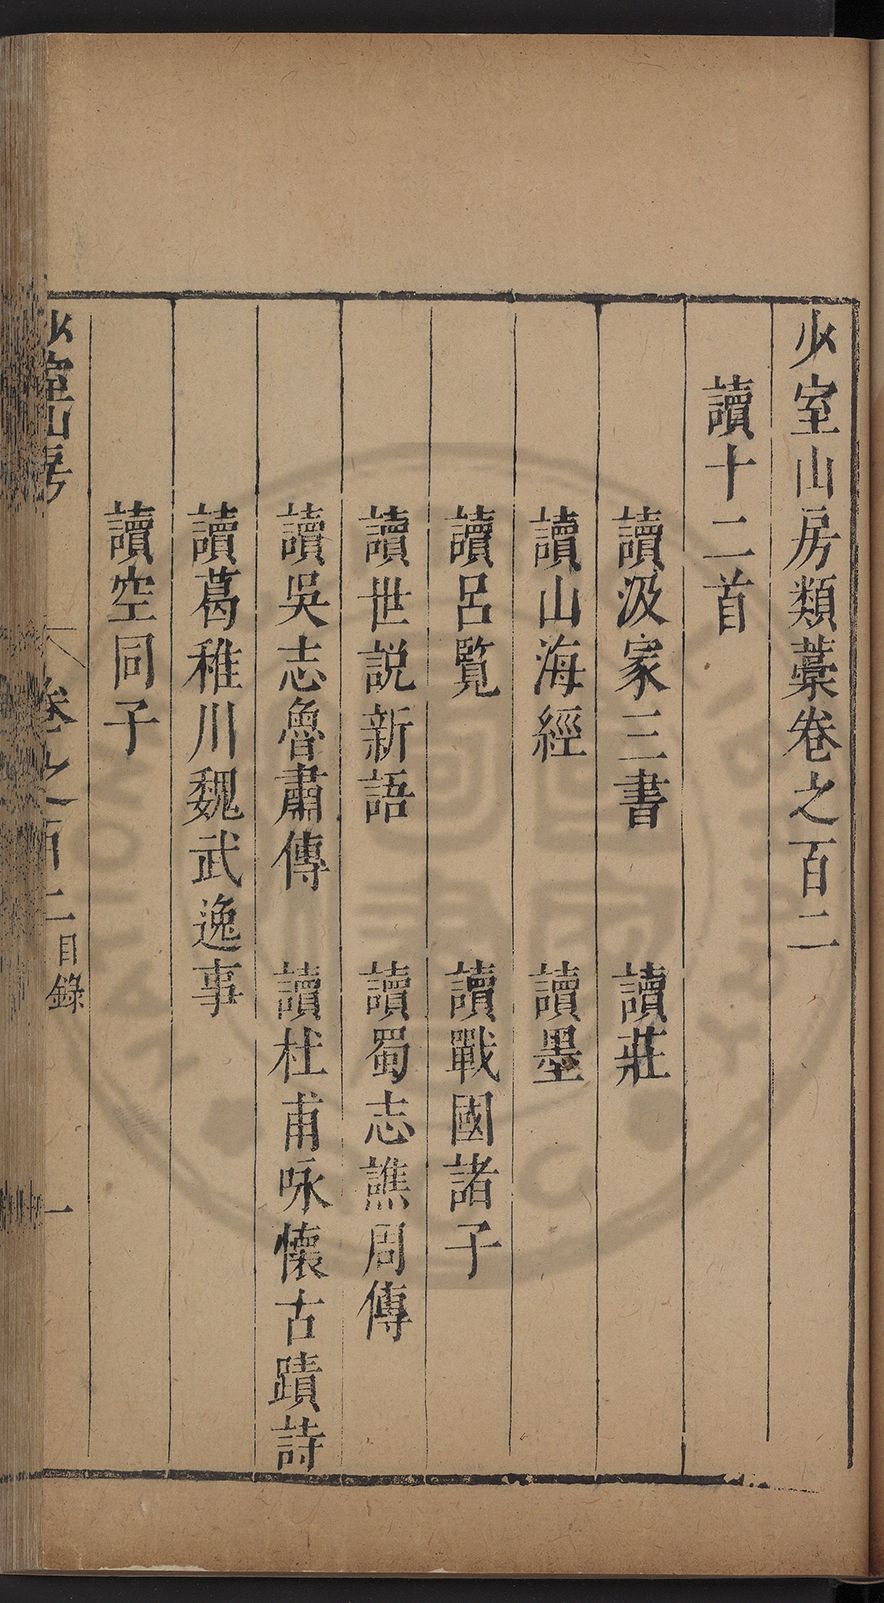 少室山房類藁卷之百二
讀十二首
讀汲冢三書　讀莊
讀山海經　讀墨
讀呂覧　讀戰國諸子
讀世説新語　讀蜀志譙周傳
讀吳志魯肅傳　讀杜甫咏懷古蹟詩
讀葛稚川魏武逸事
讀空同子
少室山房　卷之百二目錄　一